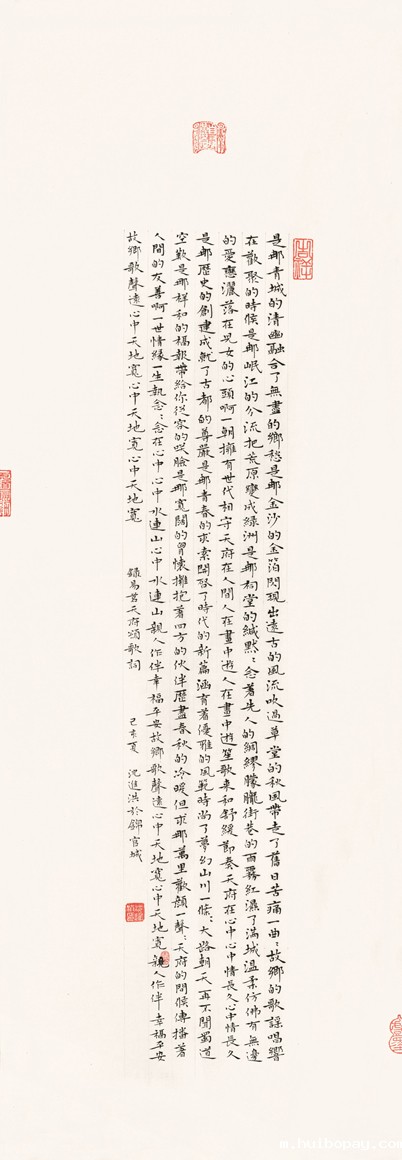 是那青城的清幽融合了無盡的鄉愁是那金沙的金箔閃現出遠古的風流吹過草堂的秋風帶走了舊日苦痛一曲：故鄉的歌謠唱響
在歡聚的時候是那岷江的分流把荒原變成綠洲是那祠堂的緘默：念著先人的綢繆朦朧街巷的雨霧紅濕了滿城溫柔仿佛有無邊
的愛戀灑落在兒女的心頭啊一朝擁有世代相守天府在人間人在畫中遊人在畫中遊笙歌東和舒緩節奏天府在心中心中情長久心中情長久
是那歷史的創建成就了古都的尊嚴是那青春的求索開啓了時代的新篇涵育著優雅的風範時尚了夢幻山川一條：大路朝天再不聞蜀道
空歎是那祥和的福報帶給你從容的笑臉是那寬闊的胃懷擁抱著四方的伙伴歷盡春秋的冷暖但求那萬里歡顏一聲：天府的問候傳播著
人間的友善啊一世情緣一生執念：念在心中心中水連山心中水連山親人作伴幸福平安故鄉歌聲遠心中天地寬心中天地寬親人作伴幸福平安
故鄉歌聲遠心中天地寬心中天地寬心中天地寬
錄馬薯天府頌歌詞
己亥夏 沈進洪於錦官城
吉祥
m.huibopay.com